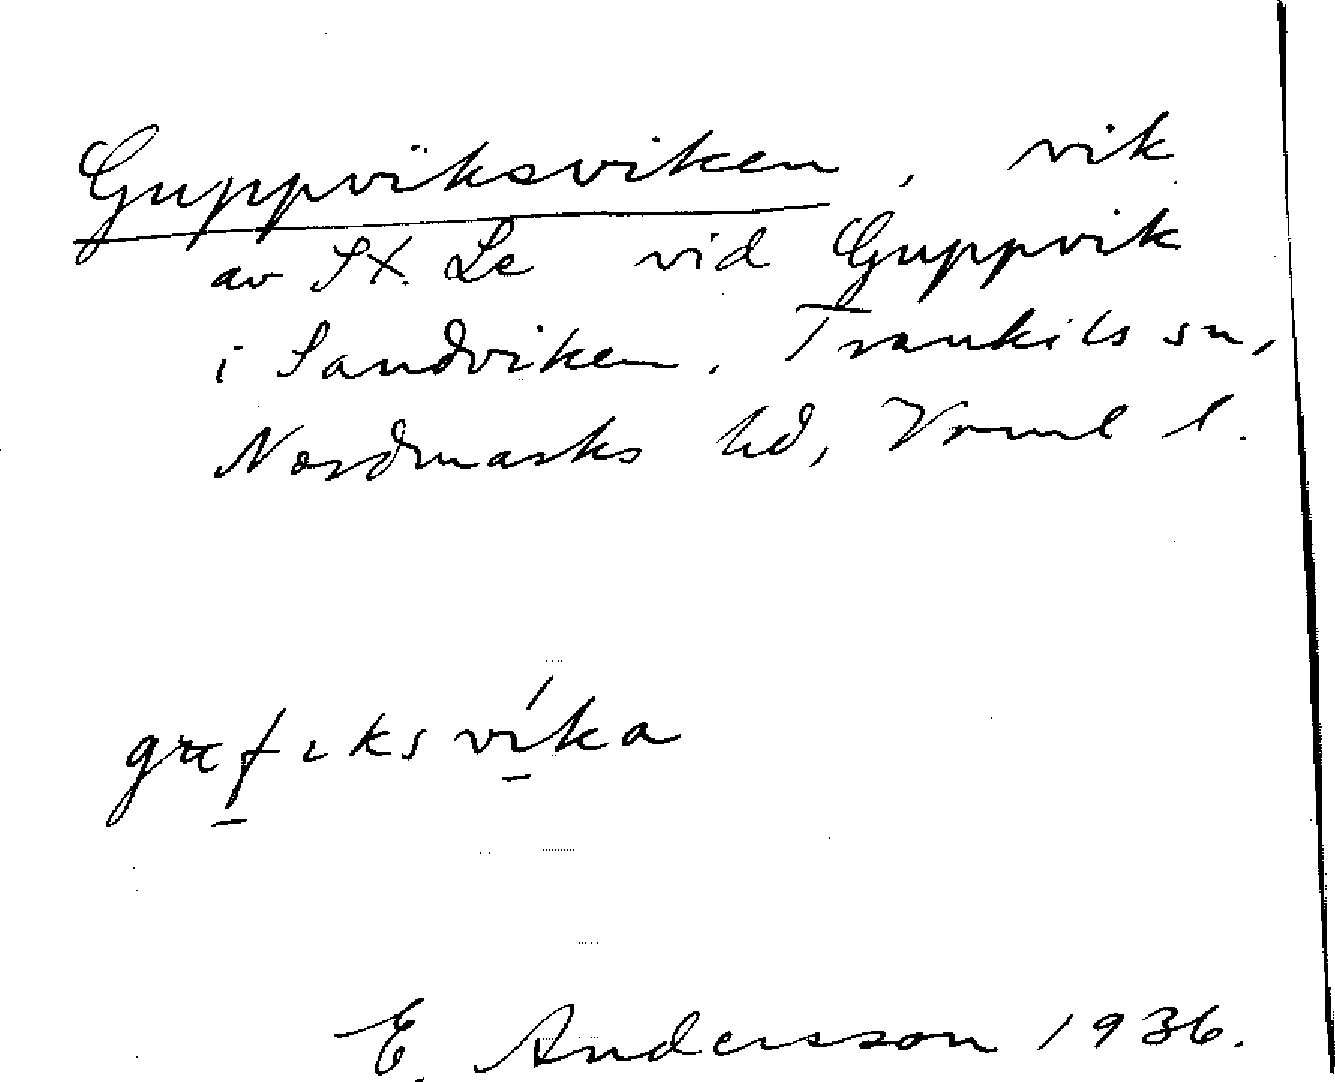 Guppviksviken, vik
av St. Le vid Guppvik
i Sandviken. Trankils sn,
Nordmarks hd, Värml l.
víka
E. Andersson 1936.